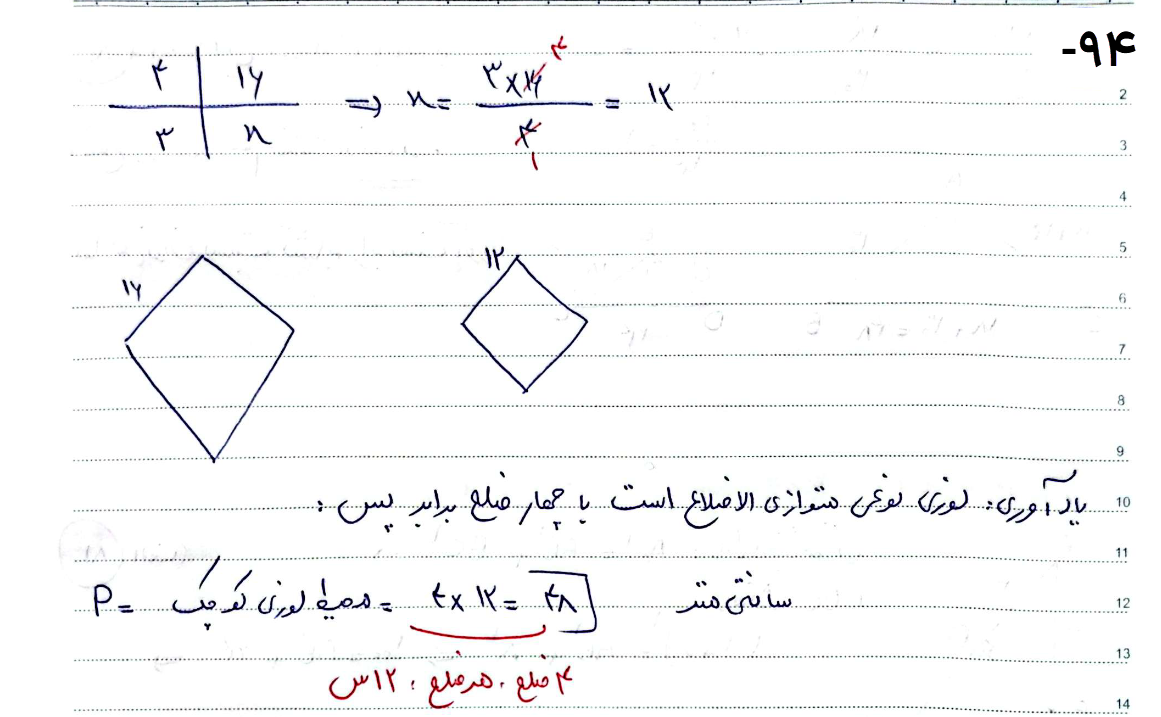 -۹۴
۴ | ۱۶
۳ | x
⇒ x = ۳×۱۶ / ۴ = ۱۲
۴
۱
۱۶
۱۲
یادآوری: لوزی نوعی متوازی الاضلاع است با چهار ضلع برابر پس :
P = محیط لوزی کوچک = ۴ × ۱۲ = ۴۸ سانتی متر
۴ ضلع . هر ضلع ۱۲ س
2
3
4
5
6
7
8
9
10
11
12
13
14